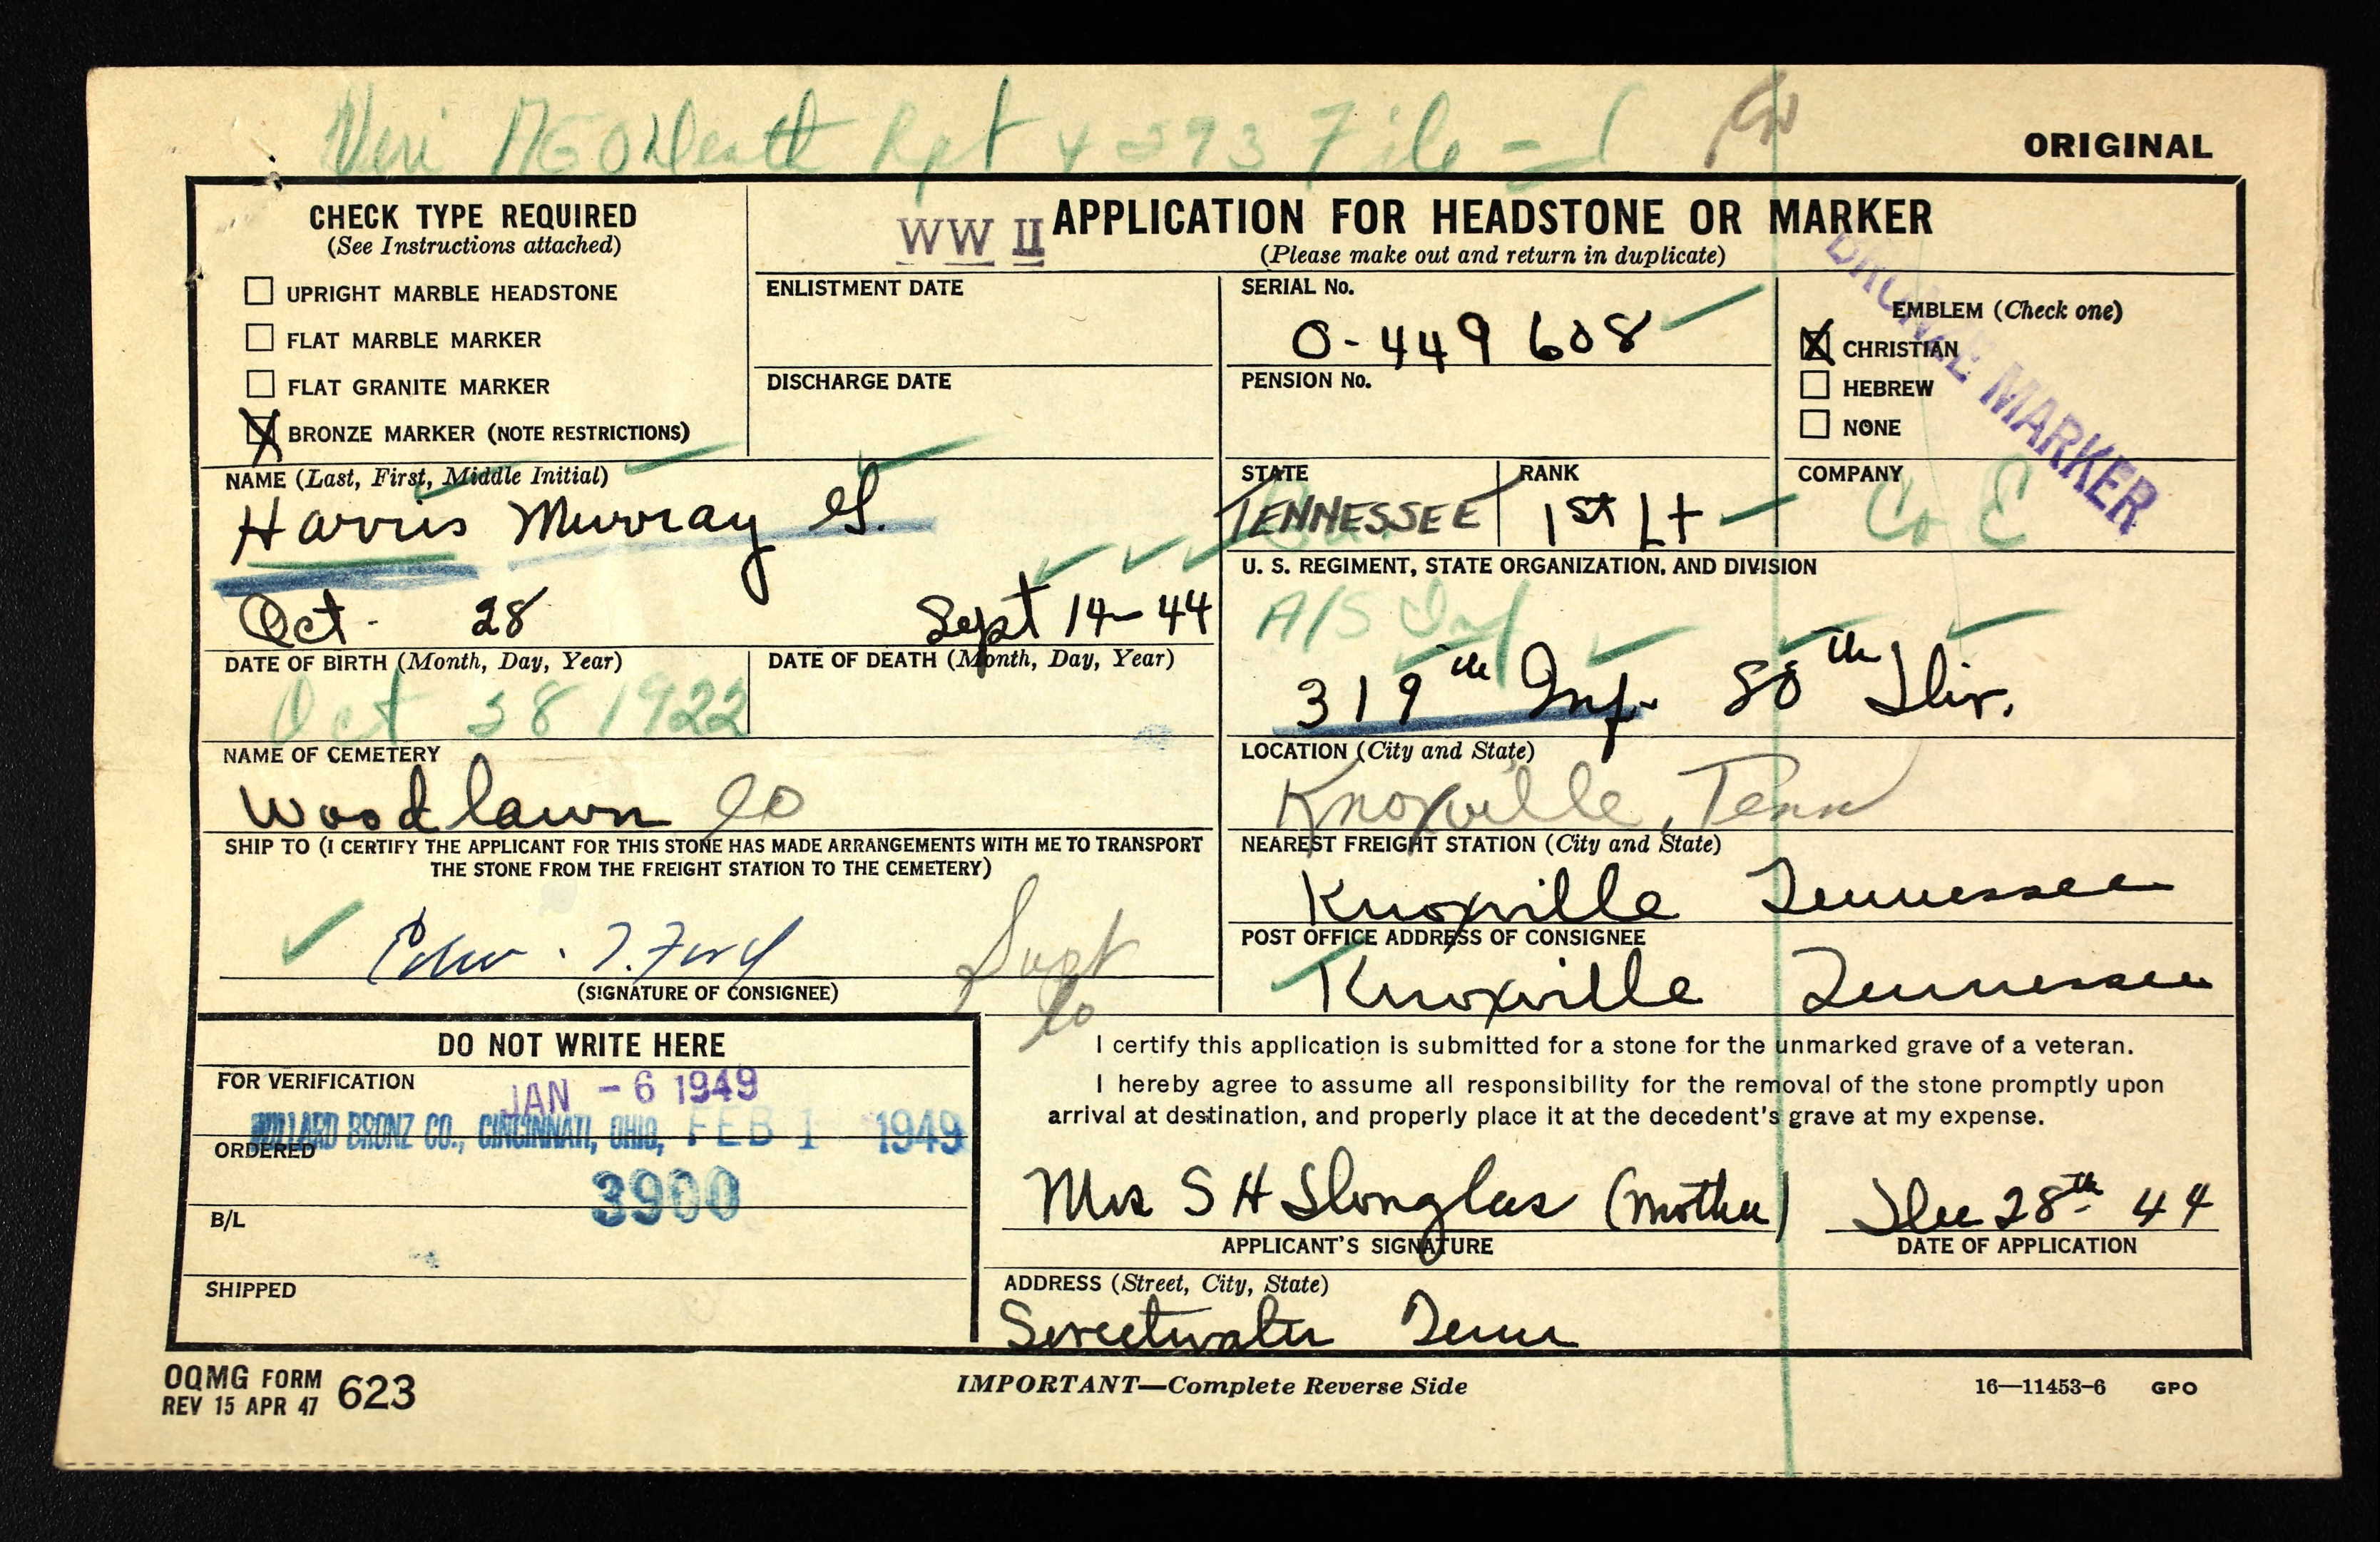 Veri AGO Death Rpt 4293 File
ORIGINAL
CHECK TYPE REQUIRED
(See Instructions attached)
UPRIGHT MARBLE HEADSTONE
FLAT MARBLE MARKER
FLAT GRANITE MARKER
X BRONZE MARKER (NOTE RESTRICTIONS)
WW II APPLICATION FOR HEADSTONE OR MARKER
(Please make out and return in duplicate)
ENLISTMENT DATE
DISCHARGE DATE
SERIAL No.
O-449 608
PENSION No.
EMBLEM (Check one)
X CHRISTIAN
HEBREW
NONE
BRONZE MARKER
NAME (Last, First, Middle Initial)
Harris Murray G.
STATE
TENNESSEE
RANK
1st Lt
COMPANY
Co E
Oct. 28
Sept 14-44
DATE OF BIRTH (Month, Day, Year)
Oct 28 1922
DATE OF DEATH (Month, Day, Year)
U. S. REGIMENT, STATE ORGANIZATION, AND DIVISION
A/S Inf
319th Inf. 80th Div.
NAME OF CEMETERY
Woodlawn
LOCATION (City and State)
Knoxville, Tenn
SHIP TO (I CERTIFY THE APPLICANT FOR THIS STONE HAS MADE ARRANGEMENTS WITH ME TO TRANSPORT
THE STONE FROM THE FREIGHT STATION TO THE CEMETERY)
T. Ford Supt
(SIGNATURE OF CONSIGNEE)
NEAREST FREIGHT STATION (City and State)
Knoxville Tennessee
POST OFFICE ADDRESS OF CONSIGNEE
Knoxville Tennessee
DO NOT WRITE HERE
FOR VERIFICATION
JAN -6 1949
WILLARD BRONZ CO., CINCINNATI, OHIO, FEB 1 1949
ORDERED
3900
B/L
SHIPPED
I certify this application is submitted for a stone for the unmarked grave of a veteran.
I hereby agree to assume all responsibility for the removal of the stone promptly upon
arrival at destination, and properly place it at the decedent's grave at my expense.
Mrs S H Douglas (Mother)
APPLICANT'S SIGNATURE
Dec 28th 44
DATE OF APPLICATION
ADDRESS (Street, City, State)
Sweetwater Tenn
OQMG FORM 623
REV 15 APR 47
IMPORTANT—Complete Reverse Side
16—11453-6 GPO